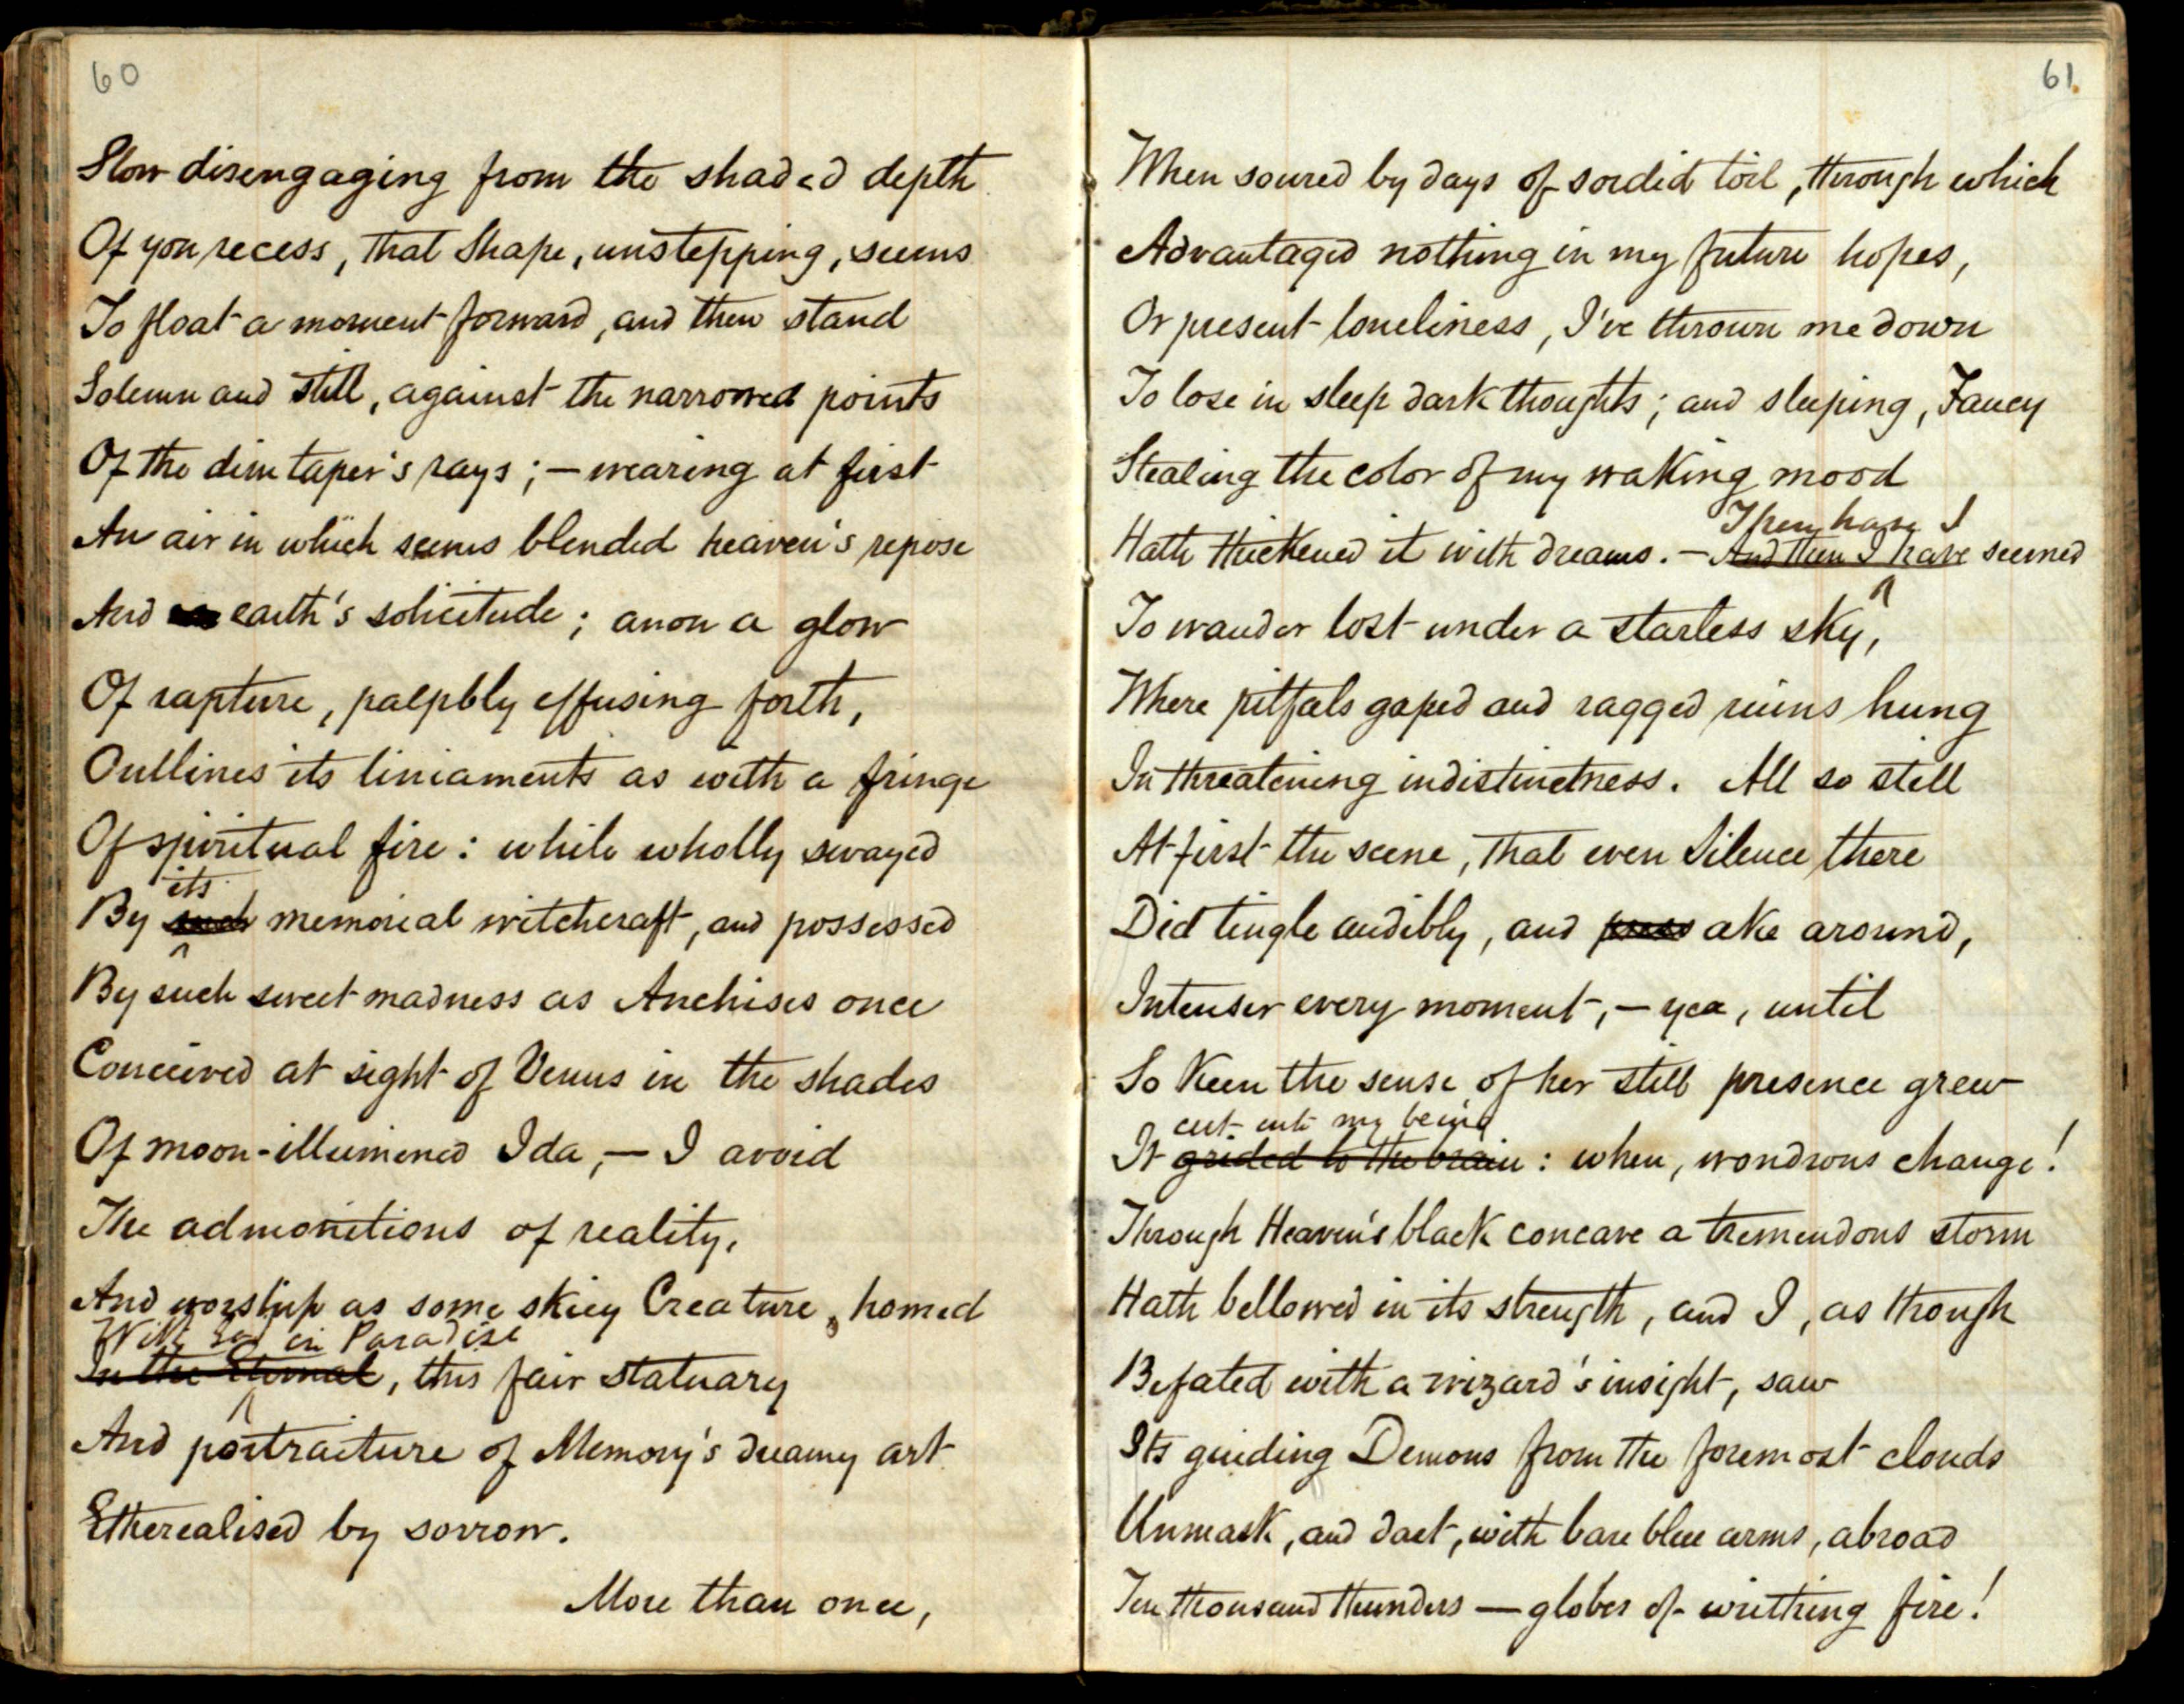 60
Slow disengaging from the shaded depth
Of yon recess, that Shape, unstepping, seems
To float a moment forward, and then stand
Solemn and still, against the narrowed points
Of the dim taper's rays; — wearing at first
An air in which seems blended heaven's repose
And earth's solicitude; anon a glow
Of rapture, palpbly effusing forth,
Outlines its liniaments as with a fringe
Of spiritual fire: while wholly swayed
its
By such memorial witchcraft, and possessed
By such sweet madness as Anchises once
Conceived at sight of Venus in the shades
Of moon-illumined Ida, — I avoid
The admonitions of reality,
And worship as some skiey Creature, homed
With God in Paradise
In the Eternal, this fair statuary
And portraiture of Memory's dreamy art
Etherealised by sorrow.
More than once,
61
When soured by days of sordid toil, through which
Advantaged nothing in my future hopes,
Or present loneliness, I've thrown me down
To lose in sleep dark thoughts; and sleeping, Fancy
Stealing the color of my waking mood
Then have I
Hath thickened it with dreams. — And then I have seemed
To wander lost under a starless sky,
Where pitfals gaped and ragged ruins hung
In threatening indistinctness. All so still
At first the scene, that even Silence there
Did tingle audibly, and press ake around,
Intenser every moment, — yea, until
So keen the sense of her still presence grew
cut into my being
It grided to the brain: when, wondrous change!
Through Heaven's black concave a tremendous storm
Hath bellowed in its strength, and I, as though
Befated with a wizard's insight, saw
Its guiding Demons from the foremost clouds
Unmask, and dart, with bare blue arms, abroad
Ten thousand thunders — globes of writhing fire!